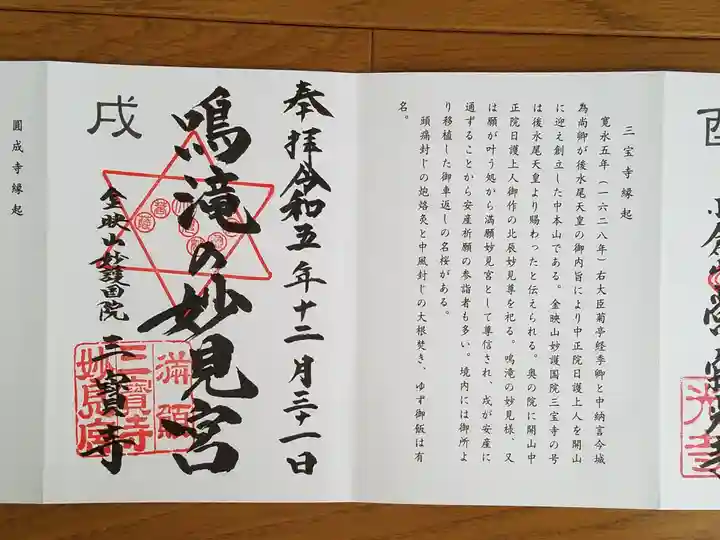 三宝寺縁起
寛永五年(一六二八年)右大臣菊亭経季卿と中納言今城
為尚卿が後水尾天皇の御内旨により中正院日護上人を開山
に迎え創立した中本山である。金映山妙護国院三宝寺の号
は後水尾天皇より賜わったと伝えられる。奥の院に開山中
正院日護上人御作の北辰妙見尊を祀る。鳴滝の妙見様、又
は願が叶う処から満願妙見宮として尊信され、戌が安産に
通ずることから安産祈願の参詣者も多い。境内には御所よ
り移植した御車返しの名桜がある。
頭痛封じの炮烙灸と中風封じの大根焚き、ゆず御飯は有
名。
奉拝令和五年十二月三十一日
鳴滝の妙見宮
戌
金映山妙護国院三寳寺
満願
三寳寺
圓成寺縁起
酉